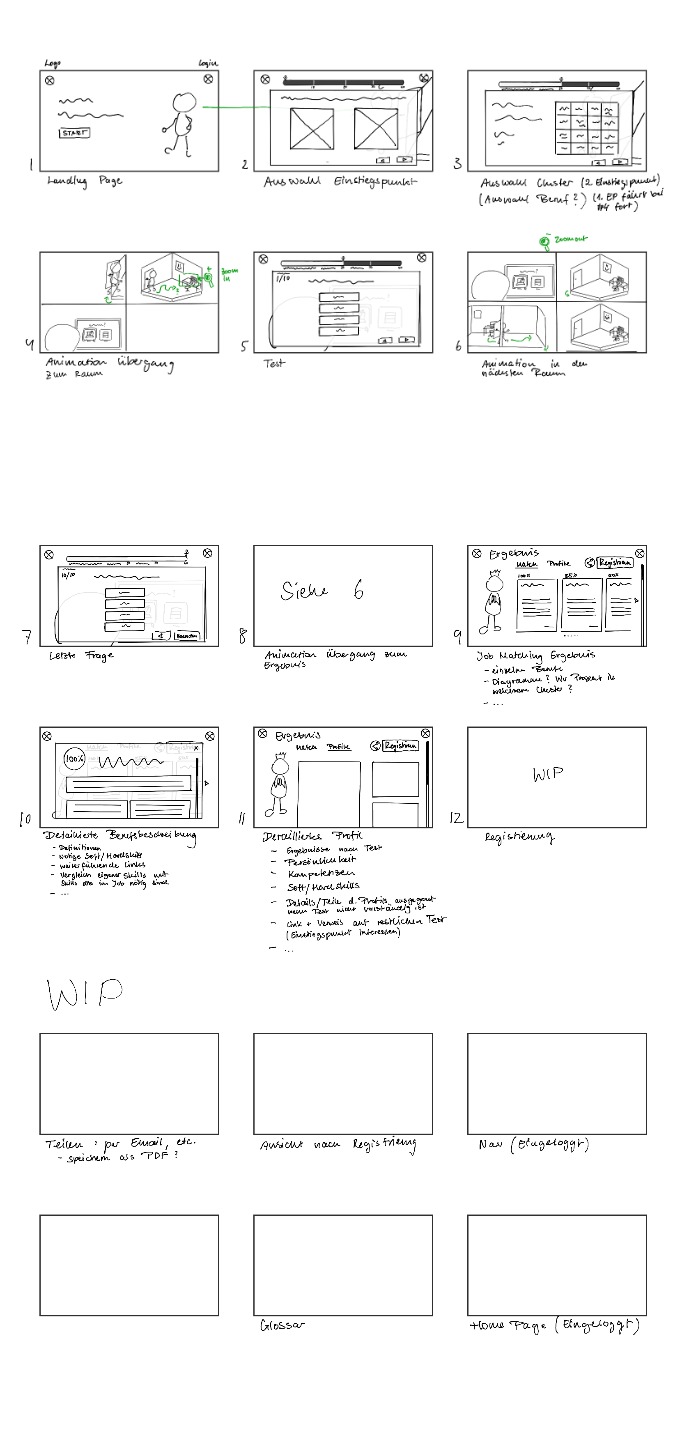 Logo
Login
START
1
Landing Page
2
Auswahl Einstiegspunkt
3
Auswahl Cluster (2. Einstiegspunkt)
(Auswahl Beruf?) (1. EP führt bei
#4 fort)
+
Zoom
in
4
Animation Übergang
zum Raum
1/10
5
Test
-
Zoom out
6
Animation in den
nächsten Raum
10/10
7
Letzte Frage
Siehe 6
8
Animation Übergang zum
Ergebnis
Ergebnis
Match Profile
Registrieren
100%
85%
9
Job Matching Ergebnis
- einzelne Berufe
- Diagramm? Wie Prozent in
welchem Cluster?
- ...
Match Profile
Registrieren
x
100%
10
Detaillierte Berufsbeschreibung
- Definitionen
- nötige Soft/Hardskills
- weiterführende Links
- Vergleich eigener Skills mit
Skills die im Job nötig sind
- ...
Ergebnis
Match Profile
Registrieren
11
Detailliertes Profil
- Ergebnisse nach Test
- Persönlichkeit
- Kompetenzen
- Soft/Hardskills
- Details/Teile d. Profils ausgegraut
wenn Test nicht vollständig ist
- Link + Verweis auf restlichen Test
(Einstiegspunkt Interessen)
- ...
WIP
12
Registrierung
WIP
Teilen: per Email, etc.
- speichern als PDF?
Ansicht nach Registrierung
Nav (Eingeloggt)
Glossar
Home Page (Eingeloggt)